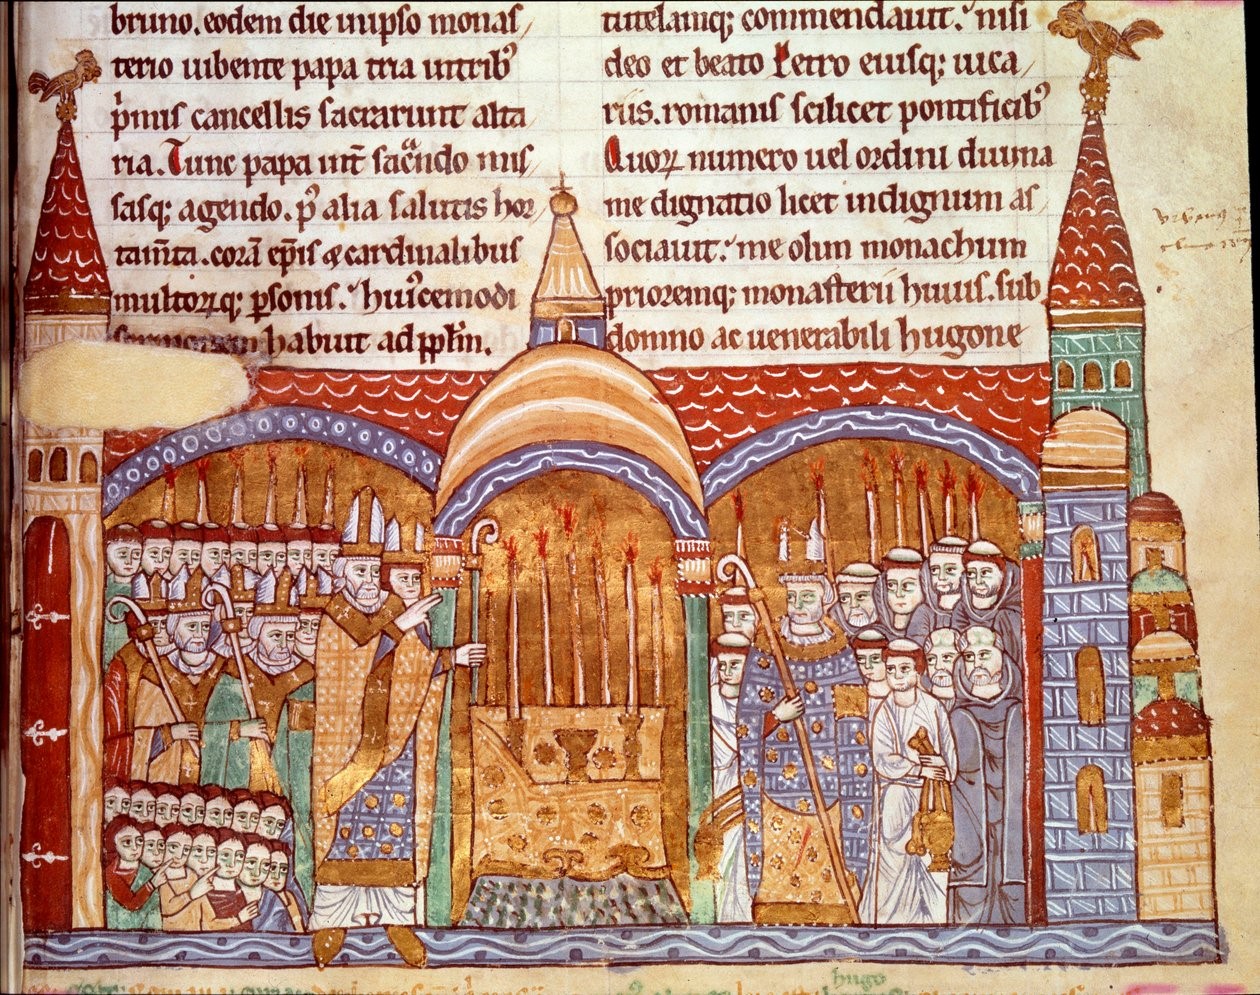 bruno. eodem die in ipso monas
terio iubente papa tria in tribꝰ
pͥmis cancellis sacrarunt alta
ria. Tunc papa int̄ sacͣndo mis
sasq; agendo. pꝰ alia salutis hor
tam̄ta. corā ep̄is ⁊ cardinalibus
multoꝝq; ꝑsonis.' huiꝰcemodi
habuit ad pl̄m.
tutelamq; commendauit.' nisi
deo et beato Petro eiusq; uica
riis. romanis scilicet pontificibꝰ
Quoꝝ numero uel ordini diuina
me dignatio licet indignum as
sociauit.' me olim monachum
prioremq; monasterii huius. sub
domno ac uenerabili hugone
hugo